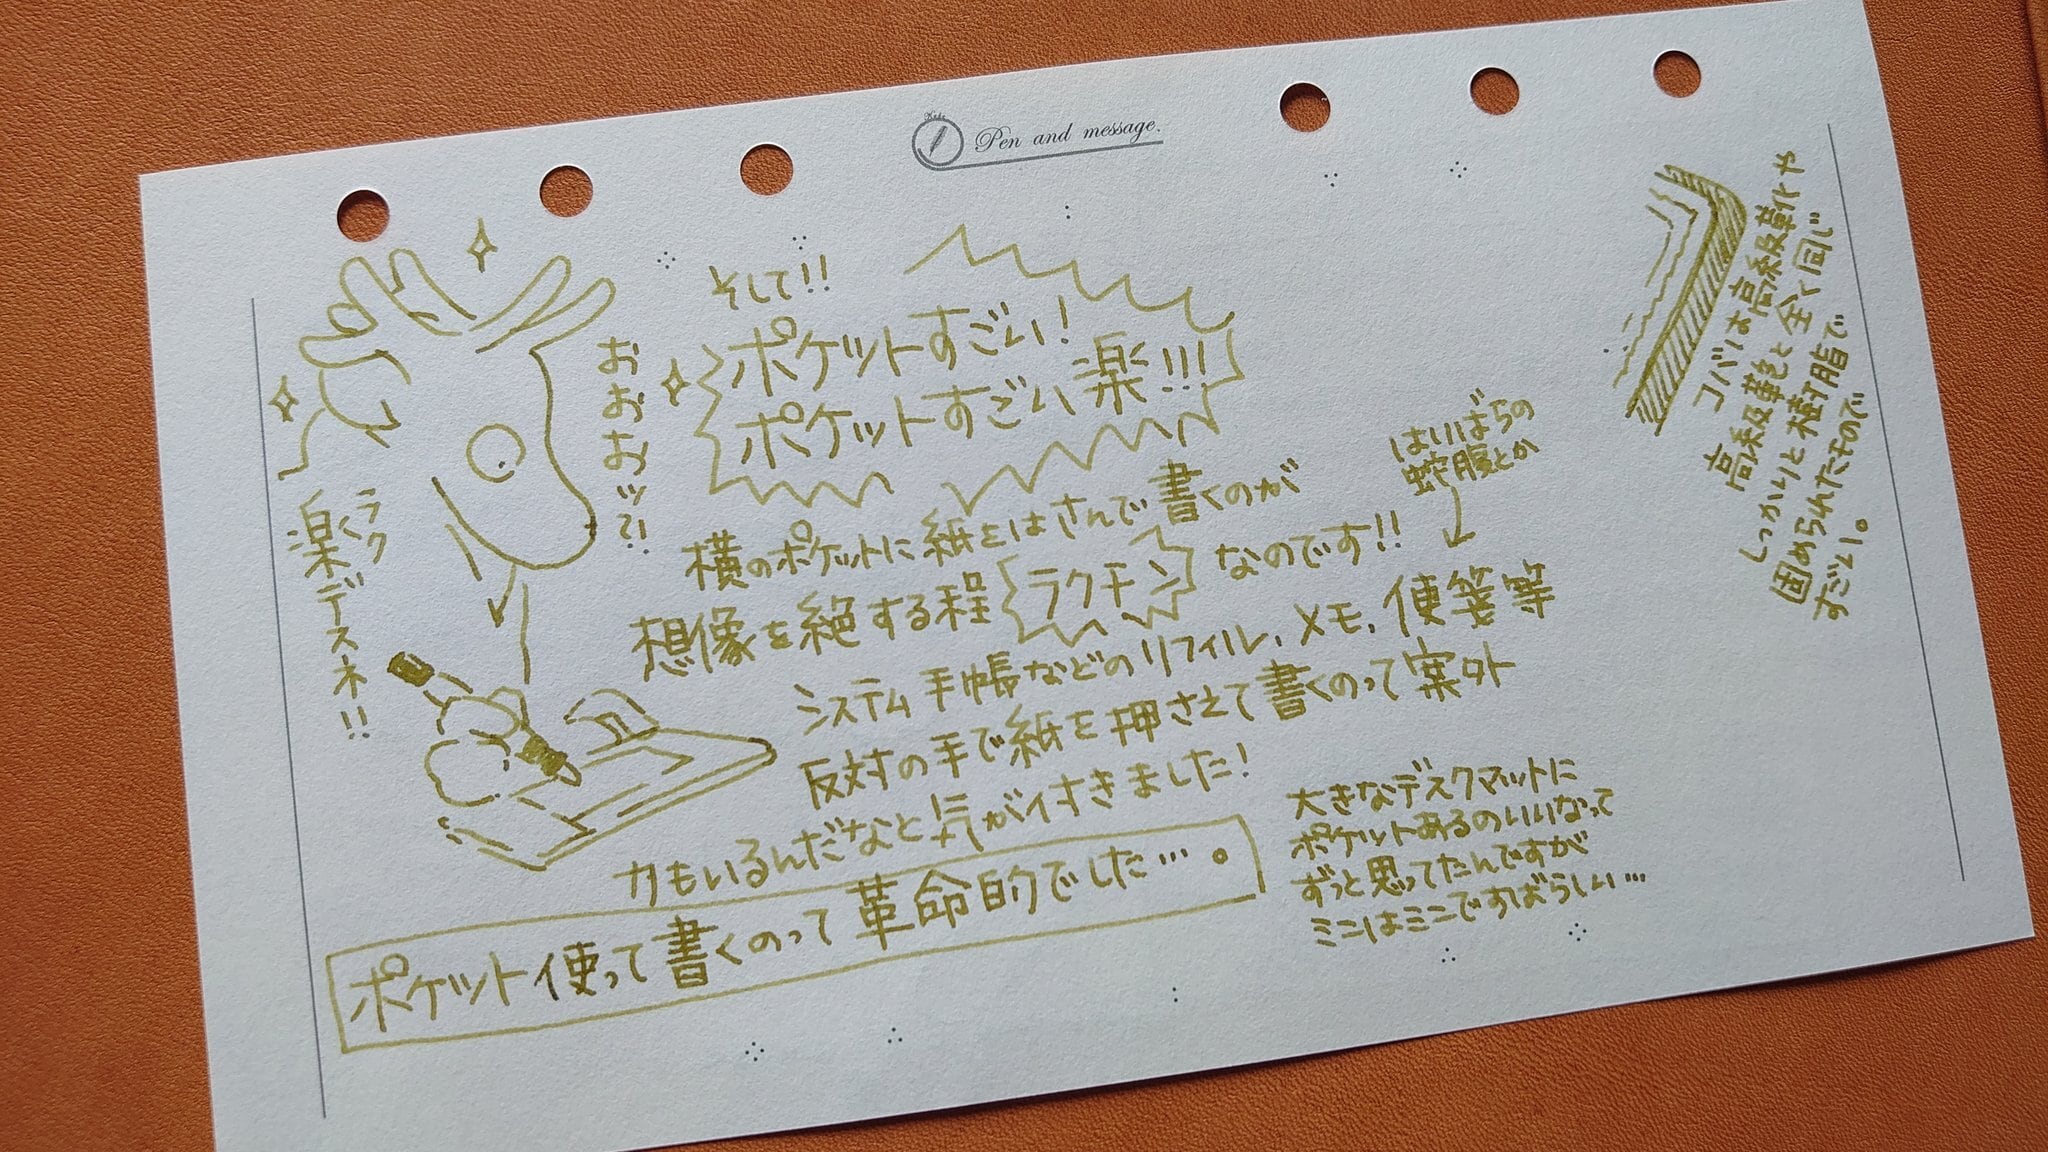 Pen and message.
そして!!
ポケットすごい!
ポケットすごい楽!!!
おおおッ?!
ラク
楽デスネ!!
横のポケットに紙をはさんで書くのが
想像を絶する程ラクチンなのです!!
はいばらの
蛇腹とか
システム手帳などのリフィル、メモ、便箋等
反対の手で紙を押さえて書くのって案外
力もいるんだなと気が付きました!
ポケット使って書くのって革命的でした…。
大きなデスクマットに
ポケットあるのいいなって
ずっと思ってたんですが
ミニはミニですばらしい…
コバは高級靴や
高級鞄と全く同じ
しっかりと樹脂で
固められたもので
すごい。